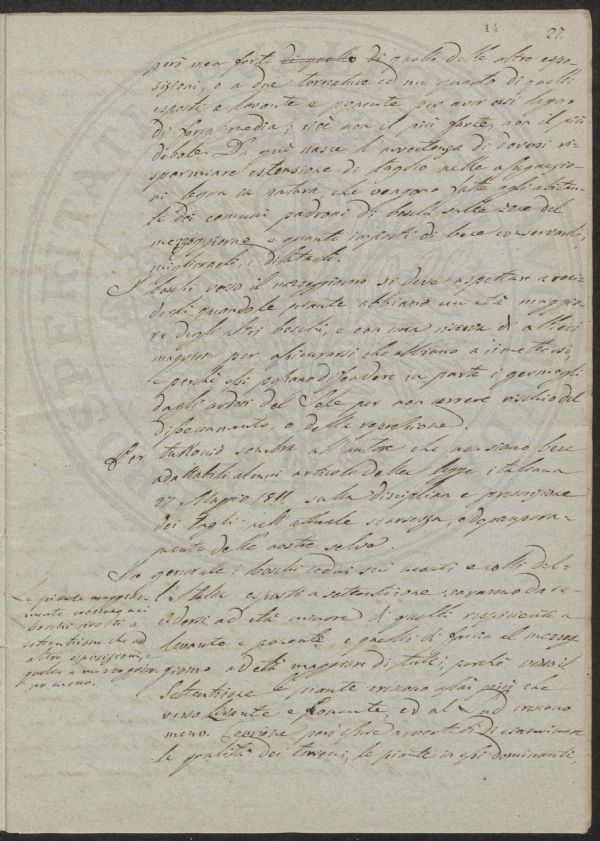 14 27
però men forte di quello di quello delle altre espo-
sizioni, o a dire tornative ed un quanto di quelli
esposti a levante e ponente per aver essi legno
di forza media; cioè non il più forte, non il più
debole. Da qui nasce l'avvertenza di doversi ri-
sparmiare estensione di taglio nelle assegnazio-
ni legna in natura che vengono fatte agli abitan-
ti dei comuni padroni di boschi sulle zone del
mezzogiorno e quanto importi di bene conservarli,
migliorarli, e dilatarli.
I boschi verso il mezzogiorno si deve aspettare a reci-
derli quando le piante abbiano un'età maggio-
re degli altri boschi, e con una riserva di allievi
maggiore per assicurarsi che abbiano a rimettersi,
e perchè essi possano difendere in parte i germogli
dagli ardori del Sole per non correre rischio del
disseccamento, o della
Per tuttociò sembra all'autore che non siano bene
adattabili alcuni articoli della legge italiana
27 Maggio 1811 sulla disciplina e prescrizione
dei tagli nell'attuale scarsezza, e depaupera-
mento delle nostre selve.
In generale i boschi cedui sui monti e colli del-
l'Italia esposti a settentrione, saranno da re-
cidersi ad età minore di quelli
levante e ponente e quelli di faccia al mezzo-
giorno ad età maggiore di tutti; perchè verso il
Settentrione le piante crescono assai più che
verso Levante e Ponente, ed al Sud crescono
meno. però essere avvertiti di esaminare
le qualità dei terreni, le piante in essi dominanti,
Le piante maggior-
mente crescono nei
boschi rivolti a
settentrione che ad
altre esposizioni, e
quelle a mezzogior-
no meno.